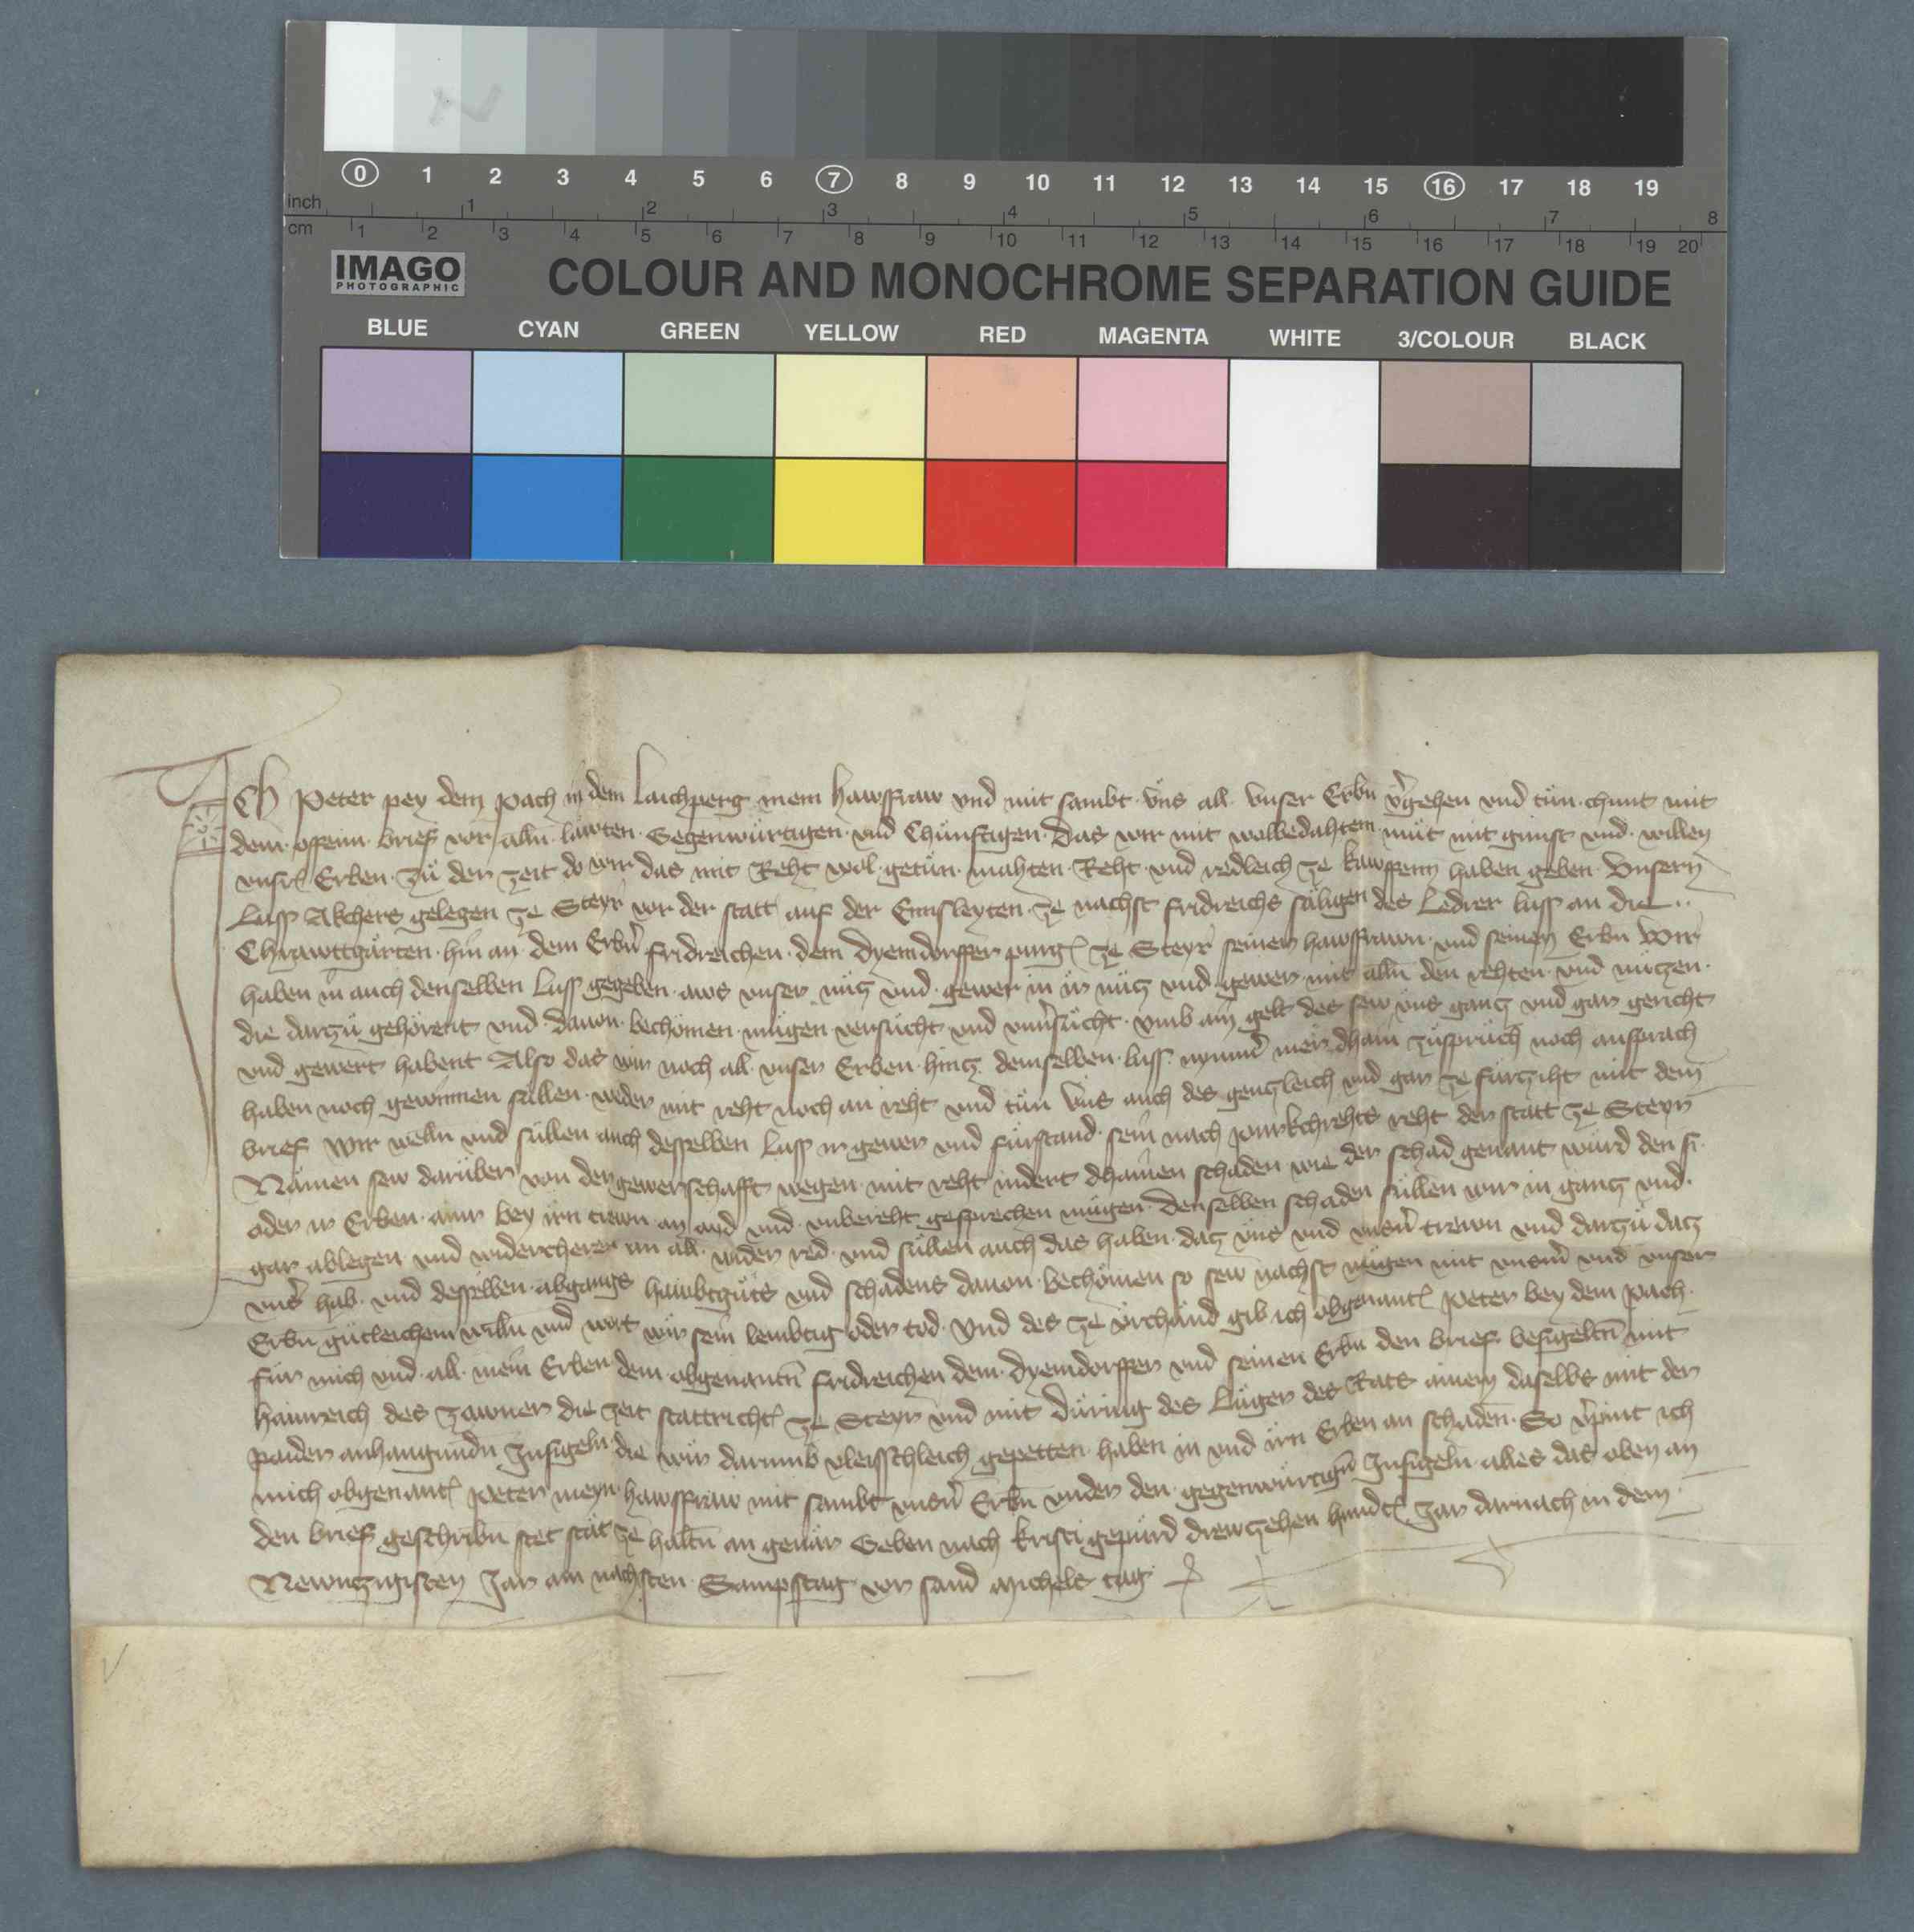 0 1 2 3 4 5 6 7 8 9 10 11 12 13 14 15 16 17 18 19
inch 1 2 3 4 5 6 7 8
cm 1 2 3 4 5 6 7 8 9 10 11 12 13 14 15 16 17 18 19 20
IMAGO
PHOTOGRAPHIC
COLOUR AND MONOCHROME SEPARATION GUIDE
BLUE CYAN GREEN YELLOW RED MAGENTA WHITE 3/COLOUR BLACK
ICh Peter pey dem pach in dem Laichperg mein hawsfraw vnd mit sambt vns all vnser Erbn v̄gehen vnd tün chunt mit
dem offenn brief vor alln läwten Gegenwürtigen vnd Chünftigen das wir mit wolbedahtem müt mit gunst vnd willen
vnsr Erben zü der zeit do wir das mit Reht wol getün mahten Reht vnd redleich ze kawffenn haben geben Vnsern
Luss Akchers gelegen ze Steyr vor der statt auf der Ennsleyten ze nachst fridreichs säligen des Ledrer luss an die
Chrawttgärten hin an dem Erbn̄ fridreichen dem Dyemdorffer purg ze Steyr seiner hawsfrawn vnd seinen Erbn Wir
haben in auch denselben Luss gegeben aws vnser nütz vnd gewer in ir nütz vnd gewer mit alln den rehten vnd nützen
die dartzü gehörent vnd dauon bechömen mügen versücht vnd vnu̇sücht vmb ain gelt des sew vns gantz vnd gar gericht
vnd gewert habent Also das wir noch all vnser Erben hintz demselben luss nymm̄ mer dhain züsprüch noch ansprach
haben noch gewinnen süllen weder mit reht noch an reht vnd tün vns auch des gentzleich vnd gar ze fürtziht mit dem
brief Wir welln vnd süllen auch desselben Luss ir gewer vnd fürstand sein nach purkchrehts reht der statt ze Steyr
Nämen sew darüber von der gewerschafft wegen mit reht indert dhainen schaden wie der schad genant würd den si
oder ir Erben ainr bey irn trewn an ayd vnd vnbereht gesprechen mügen denselben schaden süllen wir in gantz vnd
gar ablegen vnd widercheren an all wider red vnd süllen auch das haben datz vns vnd vnsn̄ trewn vnd dartzü datz
vns̄ hab vnd desselben abgangs hawbtgüts vnd schadens dauon bechömen so sew nachst mügen mit vnsm̄ vnd vnser
Erbn gütleichem willn vnd wort wir sein lembtig oder tod Vnd des ze vrchünd gib ich obgenant Peter bey dem pach
für mich vnd all mein Erben dem obgenantn̄ fridreichen dem Dyemdorffer vnd seinen Erbn den brief besigeltn̄ mit
hainreich des Zawner die zeit stattricht ze Steyr vnd mit Düring des Lüger des Rats ainem daselbs mit der
paider anhangundn Insigeln die wir darumb vleissichleich gepetten haben in vnd irn Erben an schaden So v̄pint ich
mich obgenant Peter meyn hawsfraw mit sambt vnsn̄ Erbn vnder den gegenwürtign̄ Insigeln alles das oben an
den brief geschribn stet stät ze haltn̄ an geuär Geben nach kristi gepürd drewtzehen hundt Jar darnach in dem
Newntzigisten Jar am nachsten Sampstag vor sand Michels tag